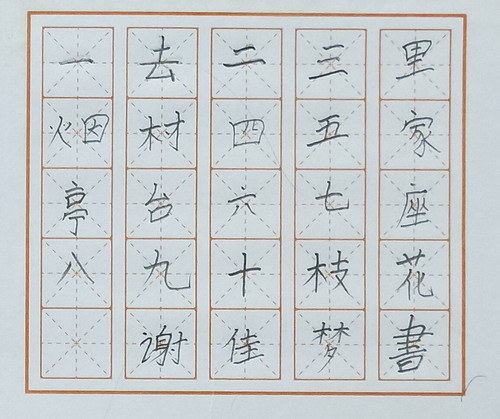 一去二三里
烟村四五家
亭台六七座
八九十枝花
谢佳梦書